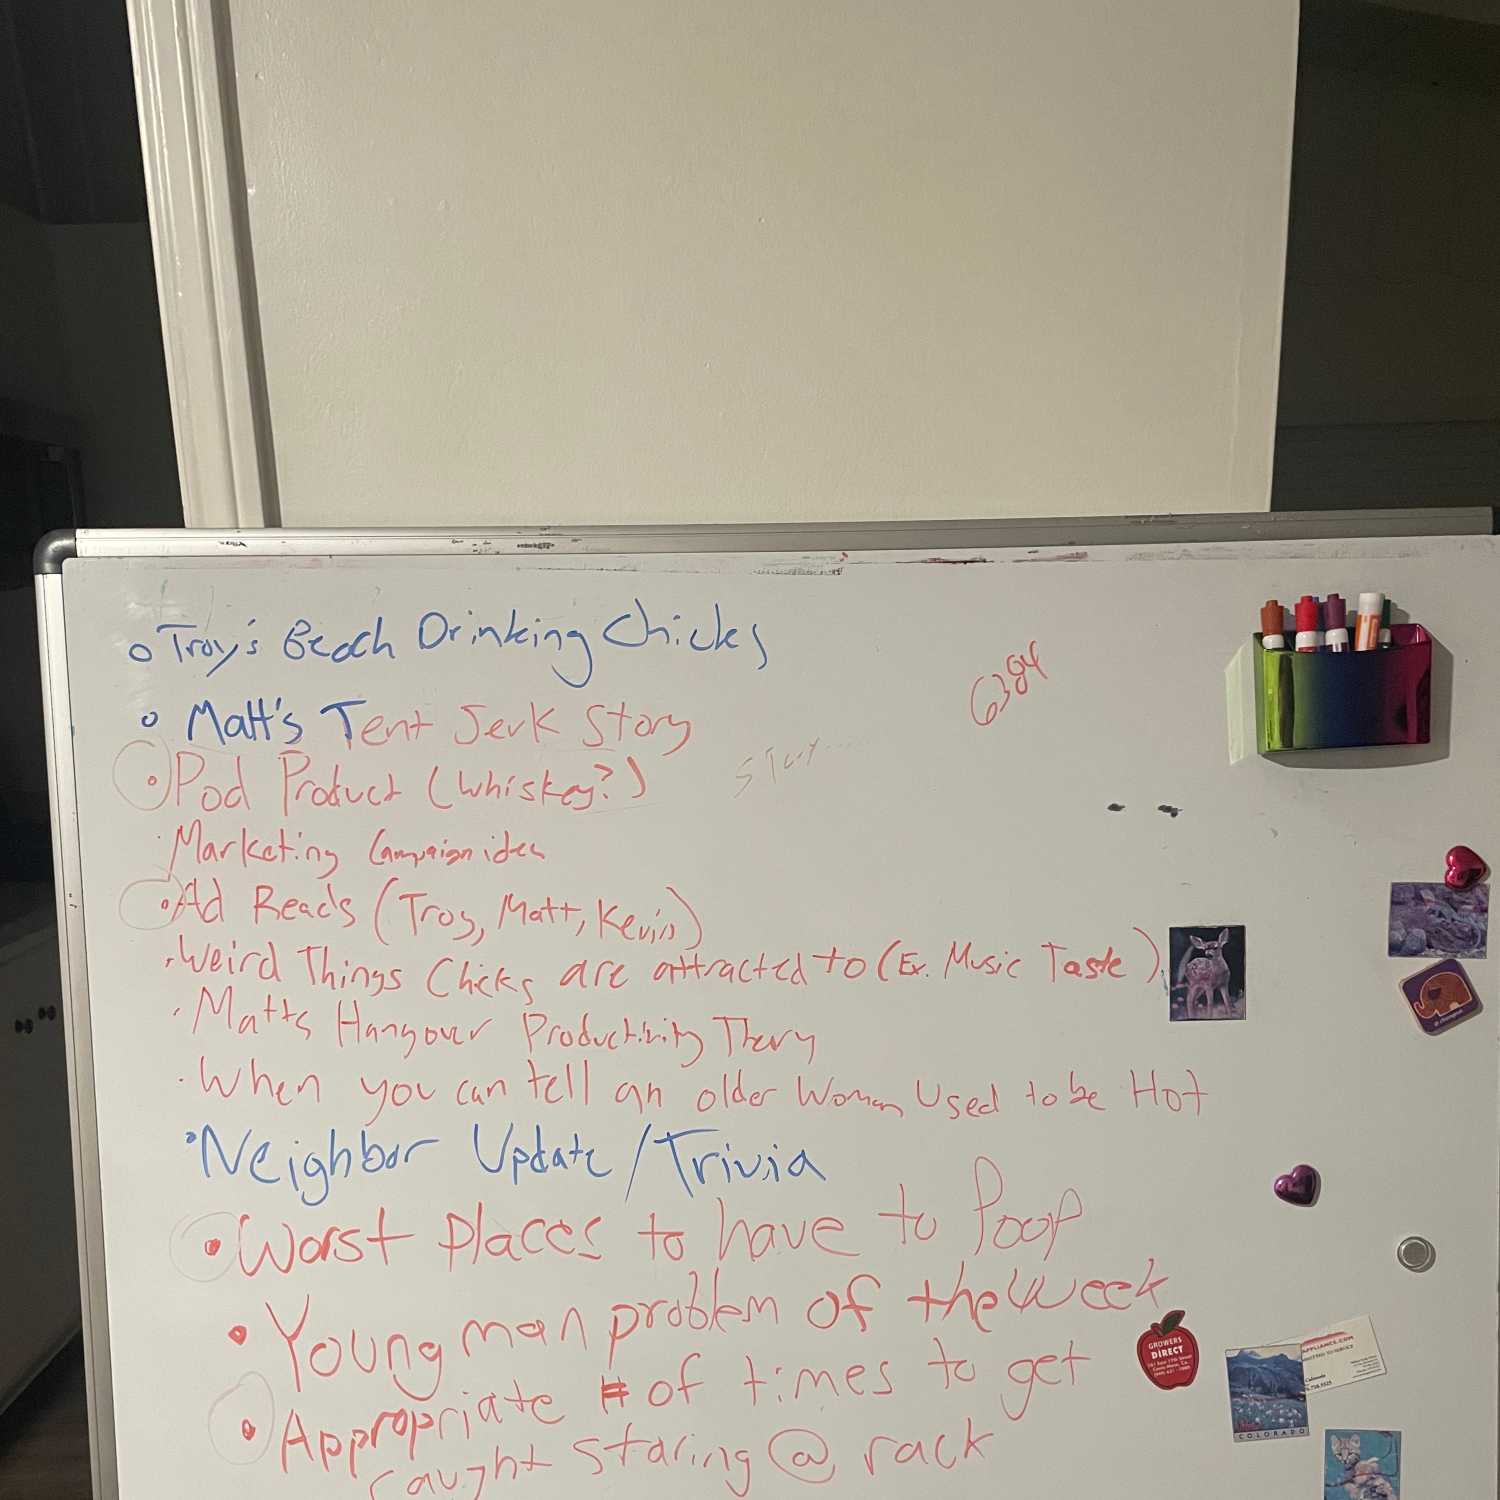 Troy's Beach Drinking Chicks
6384
Matt's Tent Jerk Story
Pod Product (Whiskey?)
Marketing Campaign idea
Ad Reads (Troy, Matt, Kevin)
Weird Things Chicks are attracted to (Ex. Music Taste)
Matts Hangover Productivity Theory
When you can tell an older Woman Used to be Hot
Neighbor Update/Trivia
Worst places to have to Poop
Young man problem of the Week
Appropriate # of times to get
caught staring @ rack
GROWERS
DIRECT
COLORADO
APPLIANCE.COM